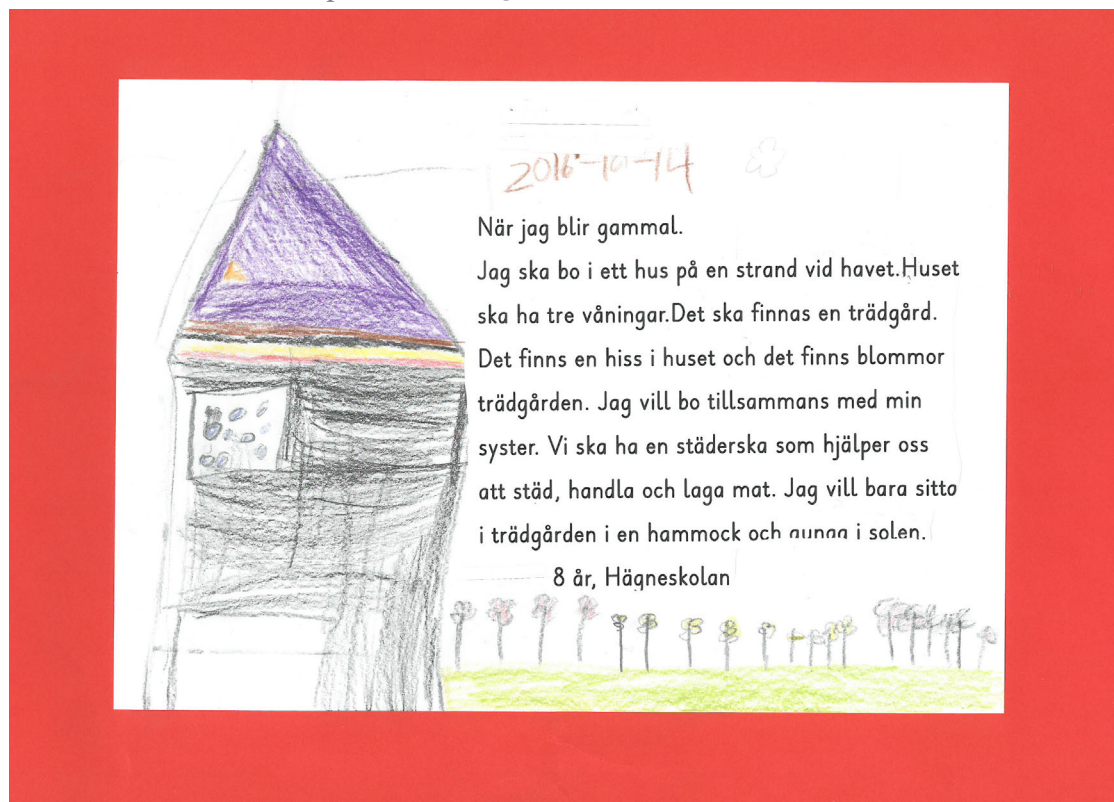 2016-10-14
När jag blir gammal.
Jag ska bo i ett hus på en strand vid havet.Huset
ska ha tre våningar.Det ska finnas en trädgård.
Det finns en hiss i huset och det finns blommor
trädgården. Jag vill bo tillsammans med min
syster. Vi ska ha en städerska som hjälper oss
att städ, handla och laga mat. Jag vill bara sitta
i trädgården i en hammock och gunga i solen.
8 år, Hägneskolan